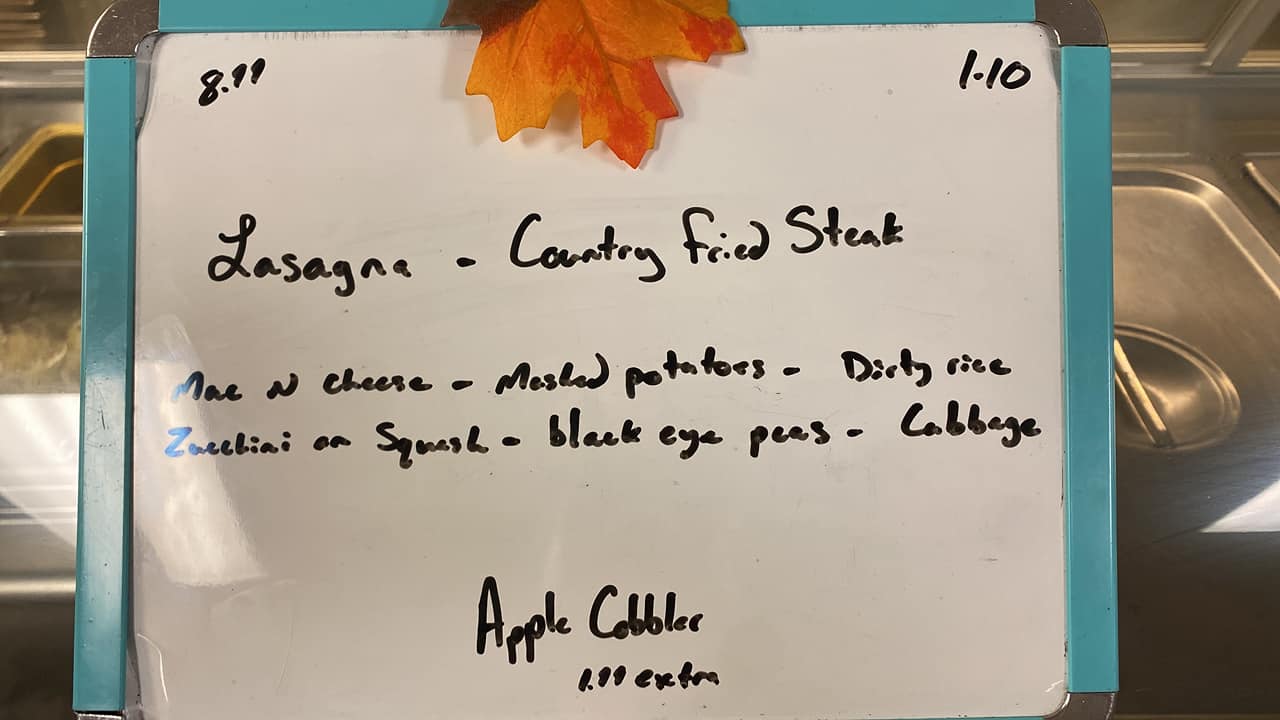 8.99 1-10
Lasagna - Country Fried Steak
Mac N cheese - Mashed potatoes - Dirty rice
Zucchini an Squash - black eye peas - Cabbage
Apple Cobbler
1.99 extra